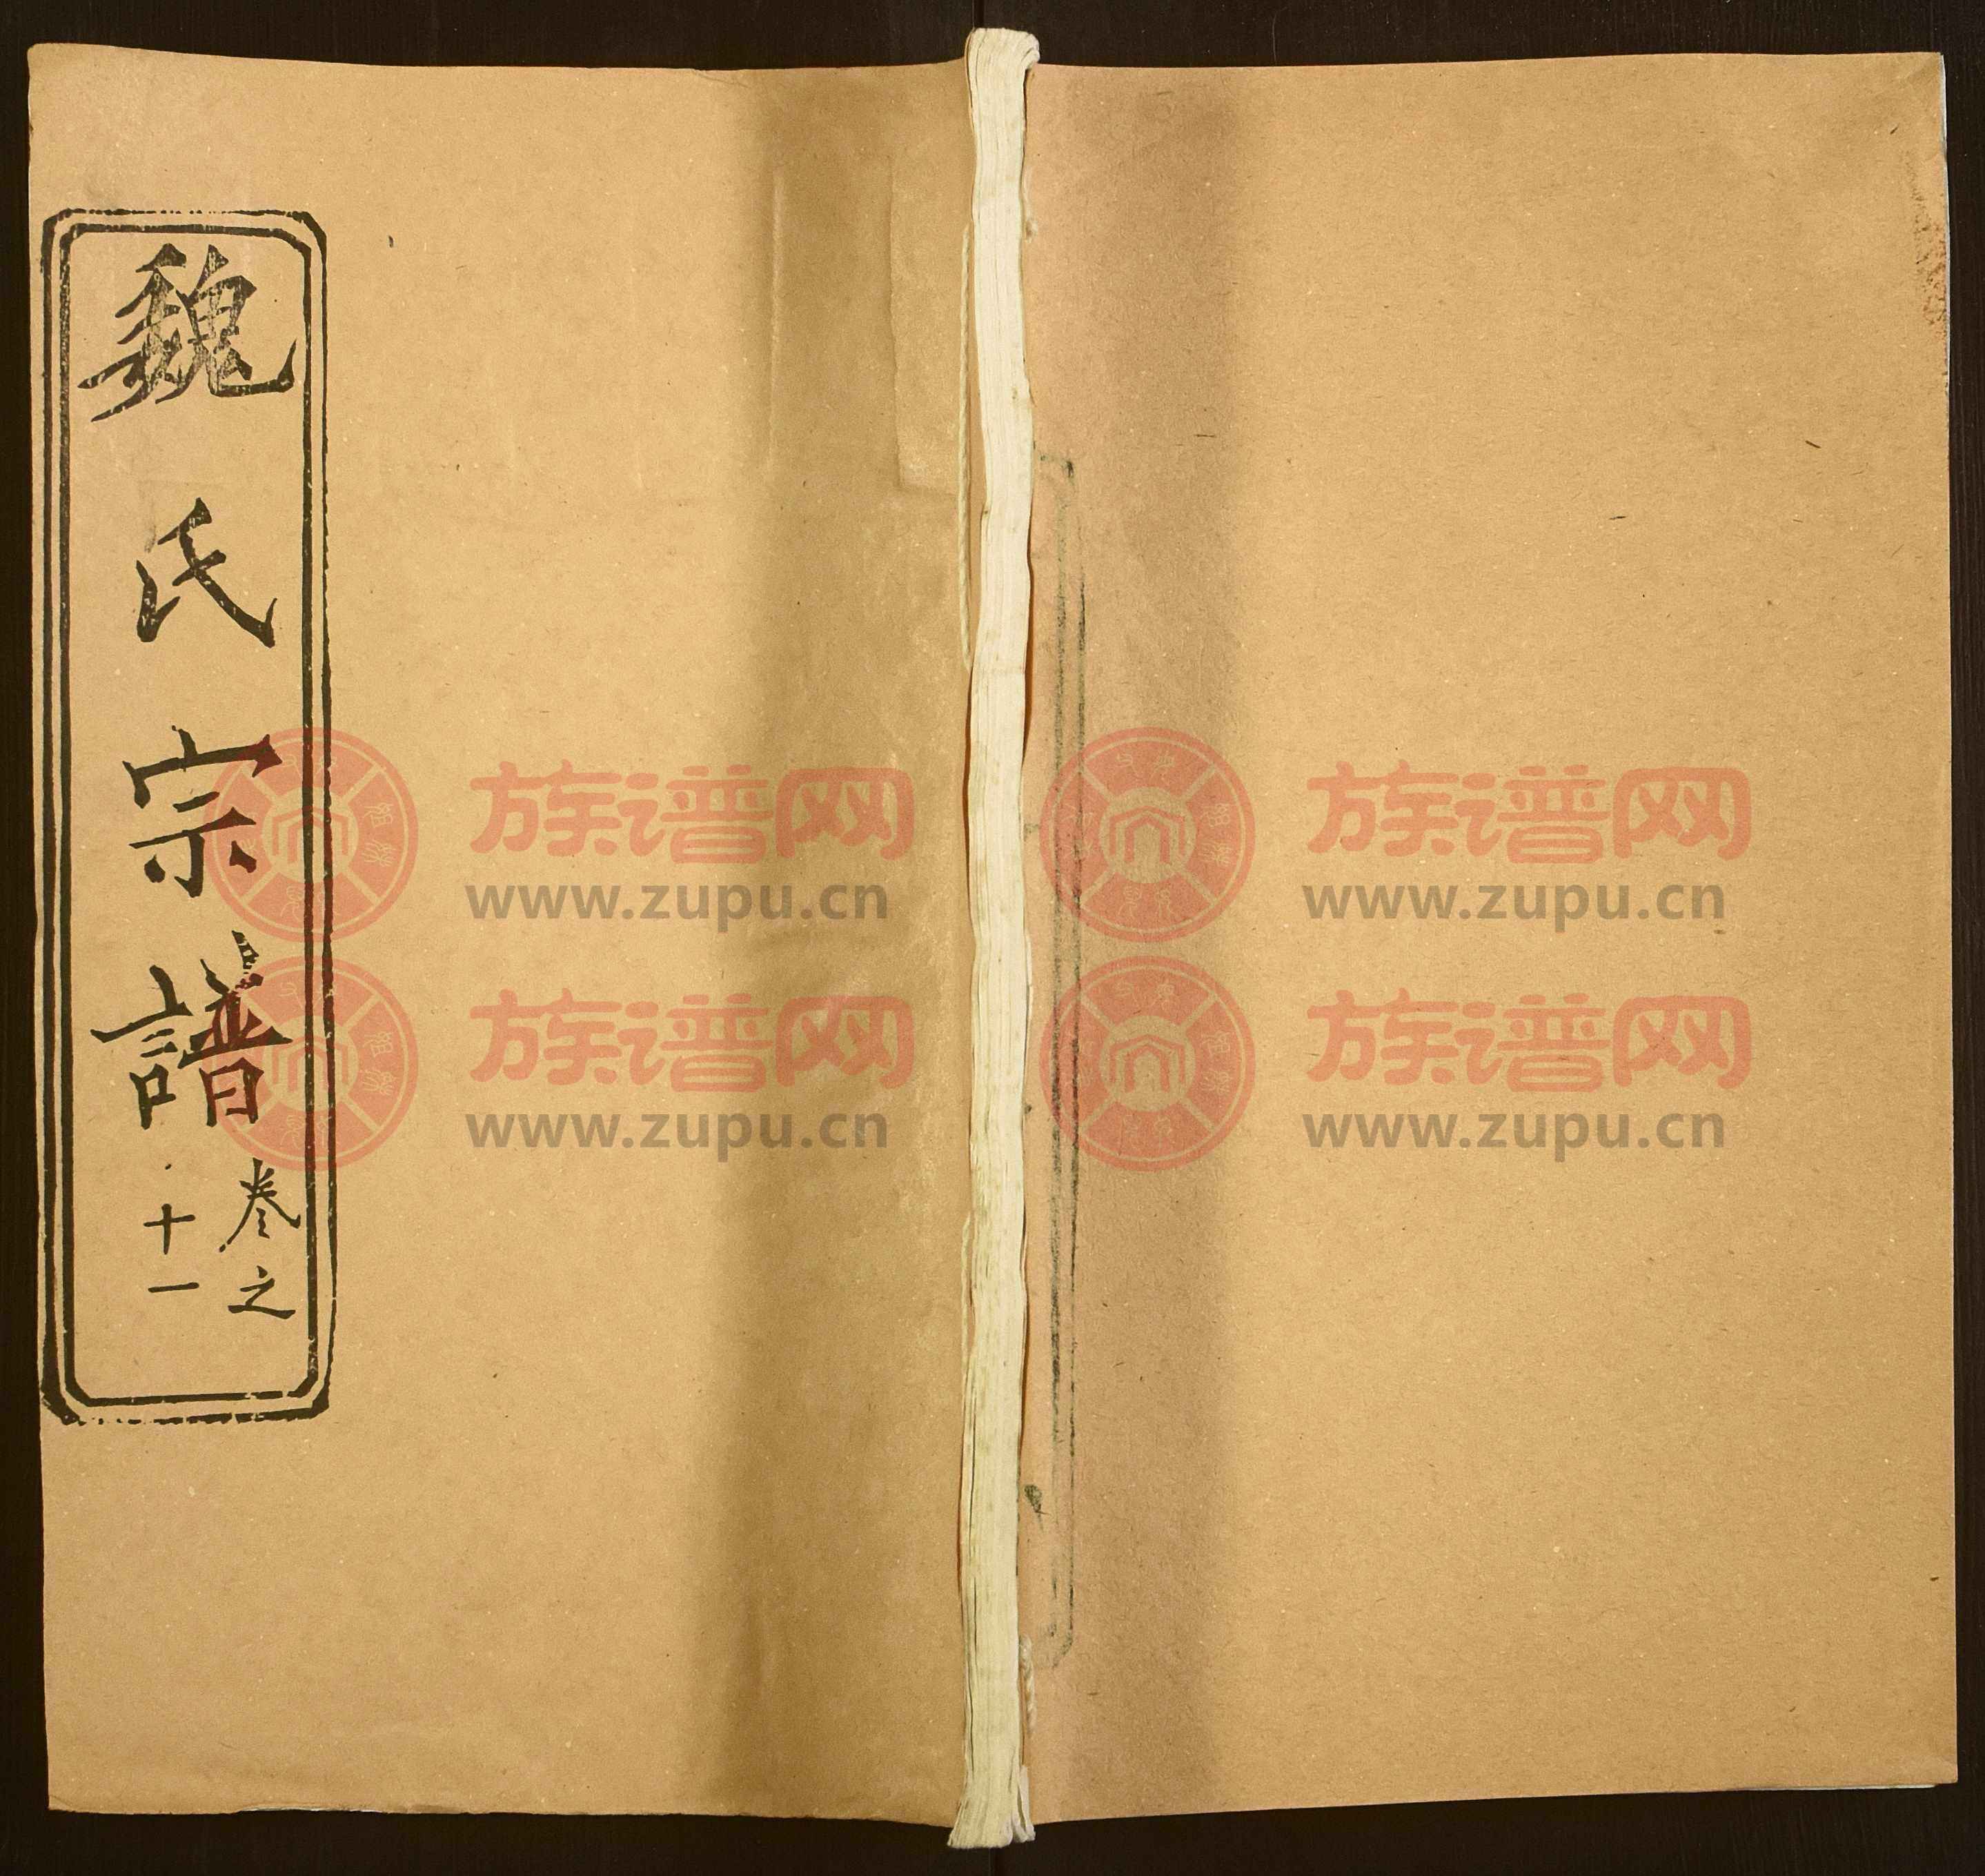 魏氏宗譜
卷之
十一
族谱网
www.zupu.cn
族谱网
www.zupu.cn
族谱网
www.zupu.cn
族谱网
www.zupu.cn